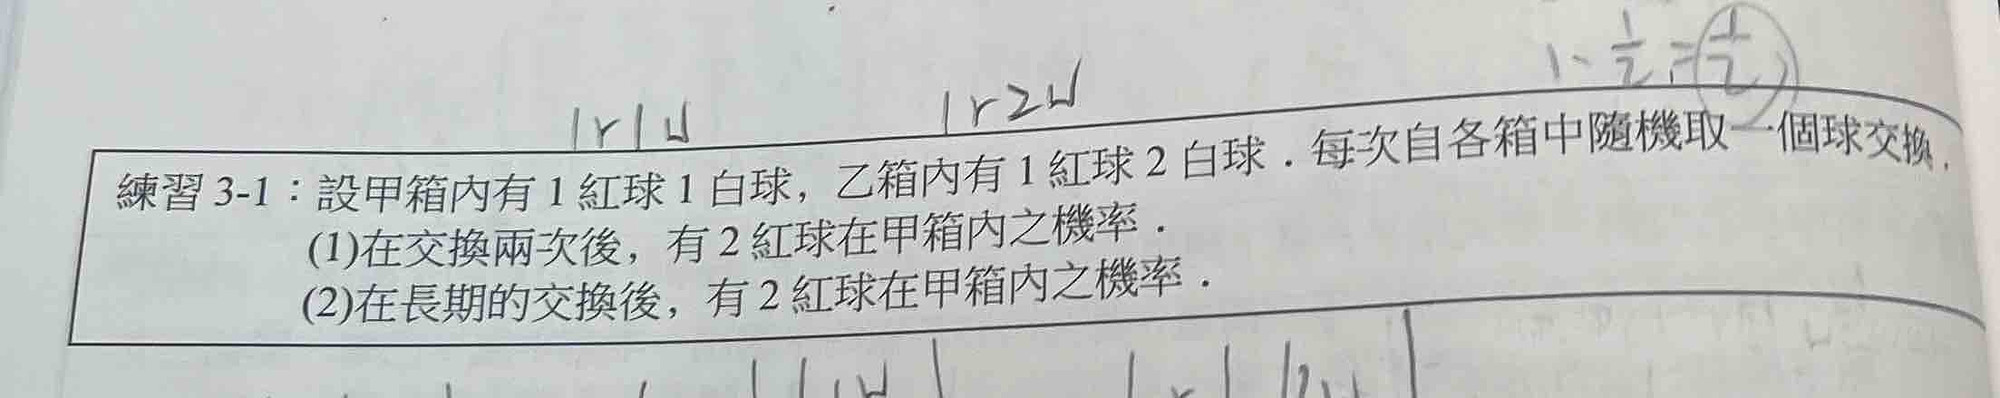 1 - 1/2 = 1/2
1r1w
1r2w
練習 3-1：設甲箱內有 1 紅球 1 白球，乙箱內有 1 紅球 2 白球．每次自各箱中隨機取一個球交換．
(1)在交換兩次後，有 2 紅球在甲箱內之機率．
(2)在長期的交換後，有 2 紅球在甲箱內之機率．